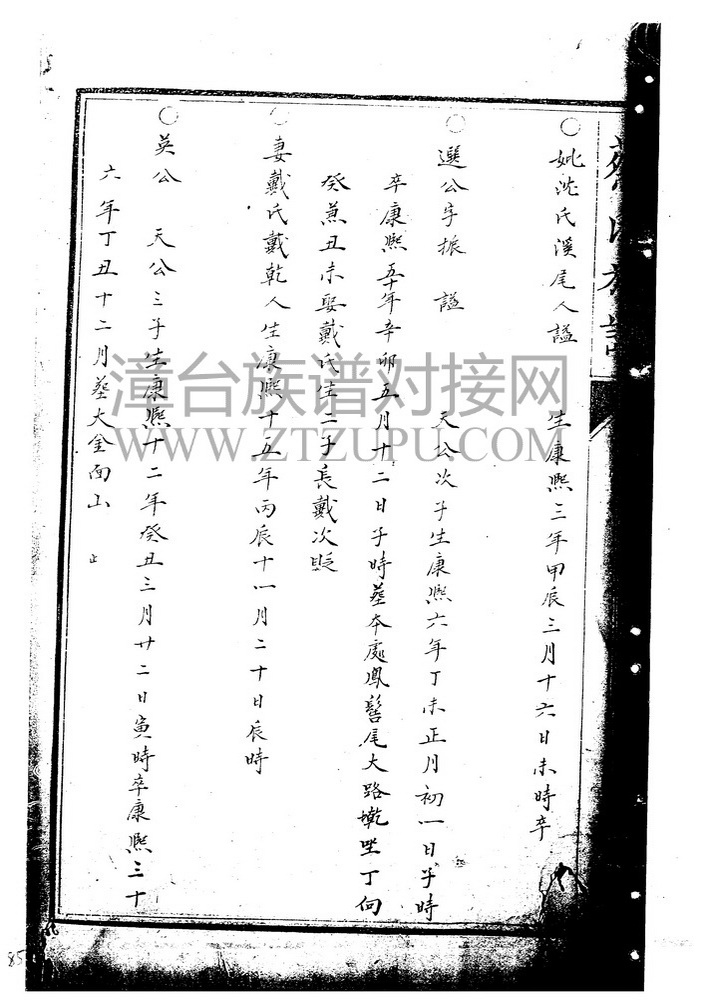 ○妣沈氏溪尾人謚 生康熙三年甲辰三月十六日未時卒
○選公字振 謚 天公次子生康熙六年丁未正月初一日子時
卒康熙五十年辛卯五月十二日子時葬本處鳳髻尾大路墘坐丁向
癸兼丑未娶戴氏生二子長戴次
○妻戴氏戴乾人生康熙十五年丙辰十一月二十日辰時
○英公 天公三子生康熙十二年癸丑三月廿二日寅時卒康熙三十
六年丁丑十二月葬大金面山 止
漳台族谱对接网
WWW.ZTZUPU.COM
85